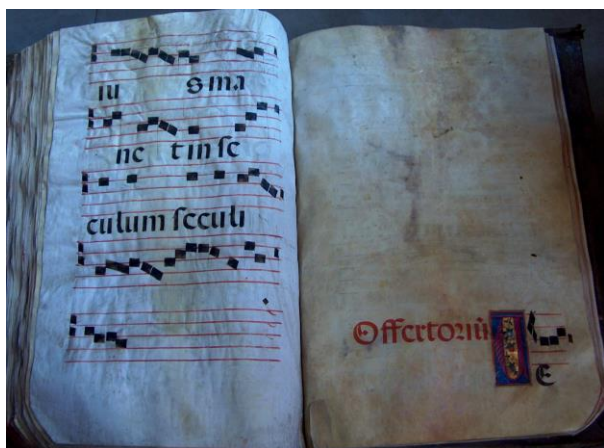 iu s ma
ne t in ſe
culum ſeculi
Offertoriũ
E